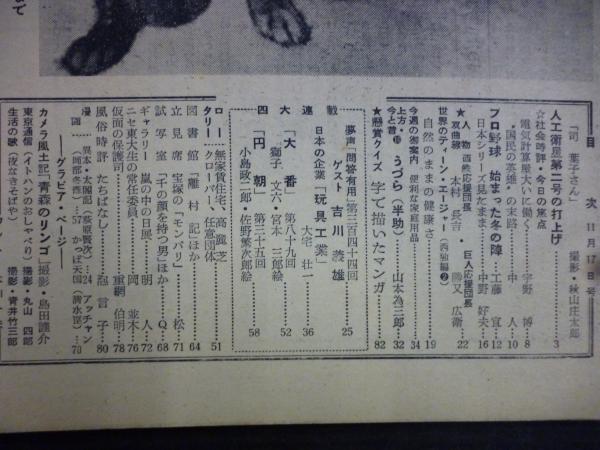 目次 11月17日号
「司 葉子さん」 撮影・秋山庄太郎
人工衛星第二号の打上げ……3
☆社会時評・今日の焦点
電気計算屋大いに働く……宇野 博…8
“国民の英雄”の末路……中 人…10
プロ野球 始まった冬の陣……工藤 宜…12
日本シリーズ見たまま……中野好夫…16
★人物双曲線 西鉄応援団長 木村長吉 巨人応援団長 勝又広衛…22
世界のティーン・エージャー(西独編②)
自然のままの健康さ……19
今週の御案内 便利な家庭用品……34
上方・今と昔 うづら(半助)……山本為三郎…32
★懸賞クイズ 字で描いたマンガ……82
夢声「問答有用」第三百四十四回
ゲスト 吉川義雄……25
日本の企業「玩具工業」……大宅壮一…36
四大連載
「大番」第八十九回
獅子文六・宮本三郎絵……52
「円朝」第三十五回
小島政二郎・佐野繁次郎絵……58
ロータリー 無家賃住宅、高麗芝 クローバー、任意団体……51
図書館「離村記」ほか……64
立見席 宝塚の「モンパリ」……松…71
試写室「千の顔を持つ男」ほか……Q…68
ギャラリー 嵐の中の日展……明 人…72
ニセ東大生の常任委員……岡 並木…76
仮面の保護司……重綱伯明…78
風俗時評 たちばなし……扈言子…80
漫画 異本・太閤記(荻原賢次)…24 アッチャン(岡部冬彦)…57 かっぱ天国(清水崑)…70
―グラビア・ページ―
カメラ風土記「青森のリンゴ」撮影・島田謹介
東京通信(イトハンのおしゃべり) 撮影・丸山四郎
生活の歌(夜なきそばや) 撮影・青井竹三郎